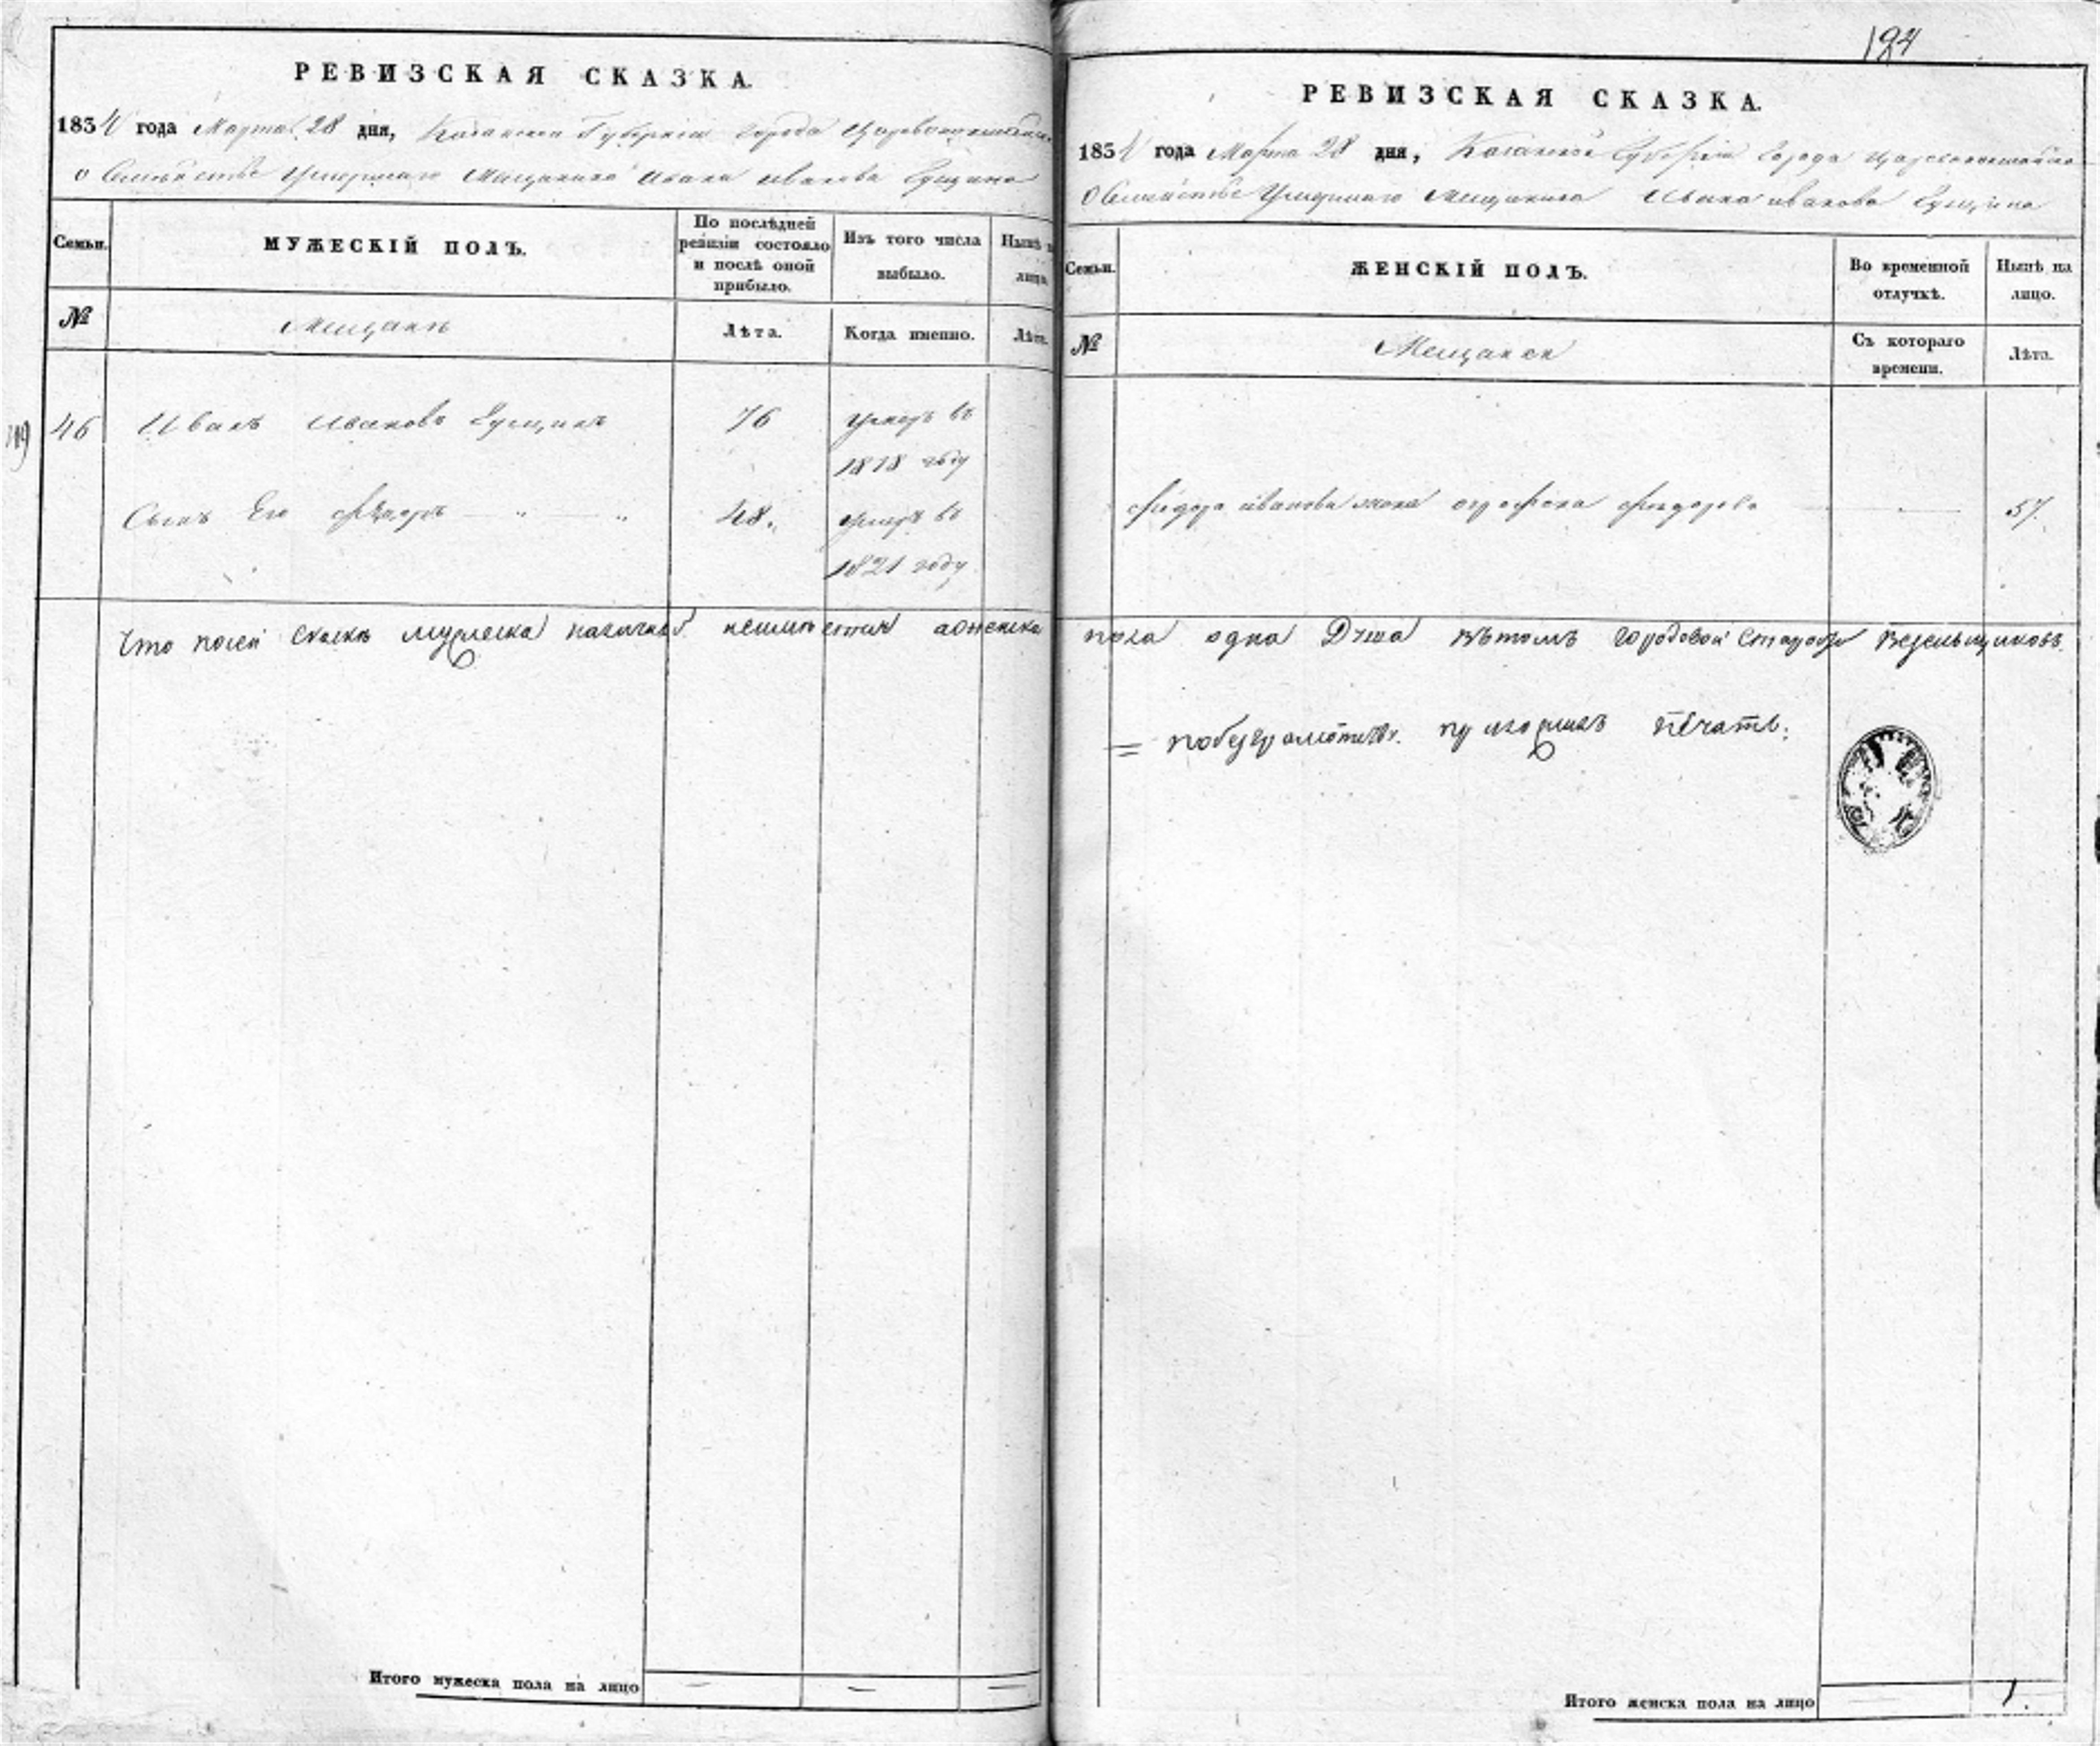 РЕВИЗСКАЯ СКАЗКА.
1834 года Марта 28 дня, Казанской Губернии города Царевококшайска
о Семействе Умершаго Мещанина Ивана Иванова
Семьи.
МУЖЕСКІЙ ПОЛЪ.
По послѣдней ревизіи состояло и послѣ оной прибыло.
Изъ того числа выбыло.
Нынѣ на лицо.
№
Мещанъ
Лѣта.
Когда именно.
Лѣта.
46 Иванъ Ивановъ 76 умеръ въ
1818 году
Сынъ Его Федоръ — „ — „ 48. умеръ въ
1821 году
Что посей скаске мужеска наличных неимѣется аженска
Итого мужеска пола на лицо — — —
124
РЕВИЗСКАЯ СКАЗКА.
1834 года Марта 28 дня, Казанской Губерніи города Царевококшайска
О Семействе Умершаго Мещанина Ивана Иванова
Семьи.
ЖЕНСКІЙ ПОЛЪ.
Во временной отлучкѣ.
Нынѣ на лицо.
№
Мещанск
Съ котораго времени.
Лѣта.
Федора Иванова жена Федорова 57.
пола одна Душа вътомъ городовой Староста
побезграмотству приложилъ печать.
Итого женска пола на лицо — 1.